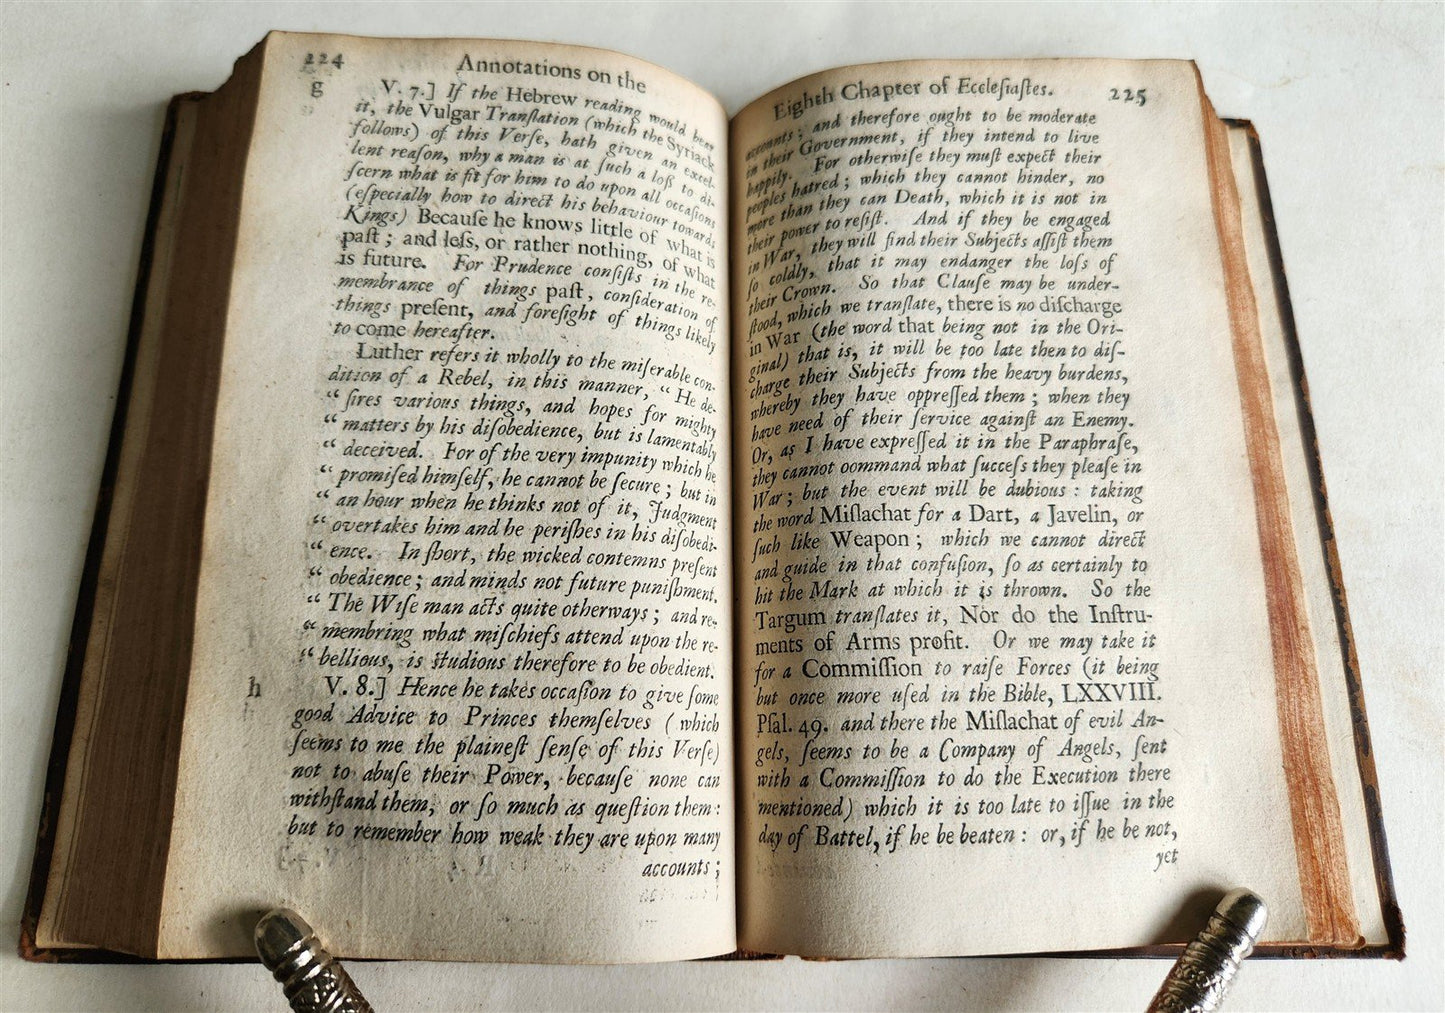 224
Annotations on the
g
V. 7.] If the Hebrew reading would bear
it, the Vulgar Tranſlation (which the Syriack
follows) of this Verſe, hath given an excel-
lent reaſon, why a man is at ſuch a loſs to di-
ſcern what is fit for him to do upon all occaſions
(eſpecially how to direct his behaviour towards
Kings) Becauſe he knows little of what is
paſt; and leſs, or rather nothing, of what
is future. For Prudence conſiſts in the re-
membrance of things paſt, conſideration of
things preſent, and foreſight of things likely
to come hereafter.
Luther refers it wholly to the miſerable con-
dition of a Rebel, in this manner, “ He de-
“ ſires various things, and hopes for mighty
“ matters by his diſobedience, but is lamentably
“ deceived. For of the very impunity which he
“ promiſed himſelf, he cannot be ſecure; but in
“ an hour when he thinks not of it, Judgment
“ overtakes him and he periſhes in his diſobedi-
“ ence. In ſhort, the wicked contemns preſent
“ obedience; and minds not future puniſhment.
“ The Wiſe man acts quite otherways; and re-
“ membring what miſchiefs attend upon the re-
“ bellious, is ſtudious therefore to be obedient.
h
V. 8.] Hence he takes occaſion to give ſome
good Advice to Princes themſelves (which
ſeems to me the plaineſt ſenſe of this Verſe)
not to abuſe their Power, becauſe none can
withſtand them, or ſo much as queſtion them:
but to remember how weak they are upon many
accounts;
Eighth Chapter of Eccleſiaſtes.
225
accounts; and therefore ought to be moderate
in their Government, if they intend to live
happily. For otherwiſe they muſt expect their
peoples hatred; which they cannot hinder, no
more than they can Death, which it is not in
their power to reſiſt. And if they be engaged
in War, they will find their Subjects aſſiſt them
ſo coldly, that it may endanger the loſs of
their Crown. So that Clauſe may be under-
ſtood, which we tranſlate, there is no diſcharge
in War (the word that being not in the Ori-
ginal) that is, it will be too late then to diſ-
charge their Subjects from the heavy burdens,
whereby they have oppreſſed them; when they
have need of their ſervice againſt an Enemy.
Or, as I have expreſſed it in the Paraphraſe,
they cannot oommand what ſucceſs they pleaſe in
War; but the event will be dubious: taking
the word Miſlachat for a Dart, a Javelin, or
ſuch like Weapon; which we cannot direct
and guide in that confuſion, ſo as certainly to
hit the Mark at which it is thrown. So the
Targum tranſlates it, Nor do the Inſtru-
ments of Arms profit. Or we may take it
for a Commiſſion to raiſe Forces (it being
but once more uſed in the Bible, LXXVIII.
Pſal. 49. and there the Miſlachat of evil An-
gels, ſeems to be a Company of Angels, ſent
with a Commiſſion to do the Execution there
mentioned) which it is too late to iſſue in the
day of Battel, if he be beaten: or, if he be not,
yet